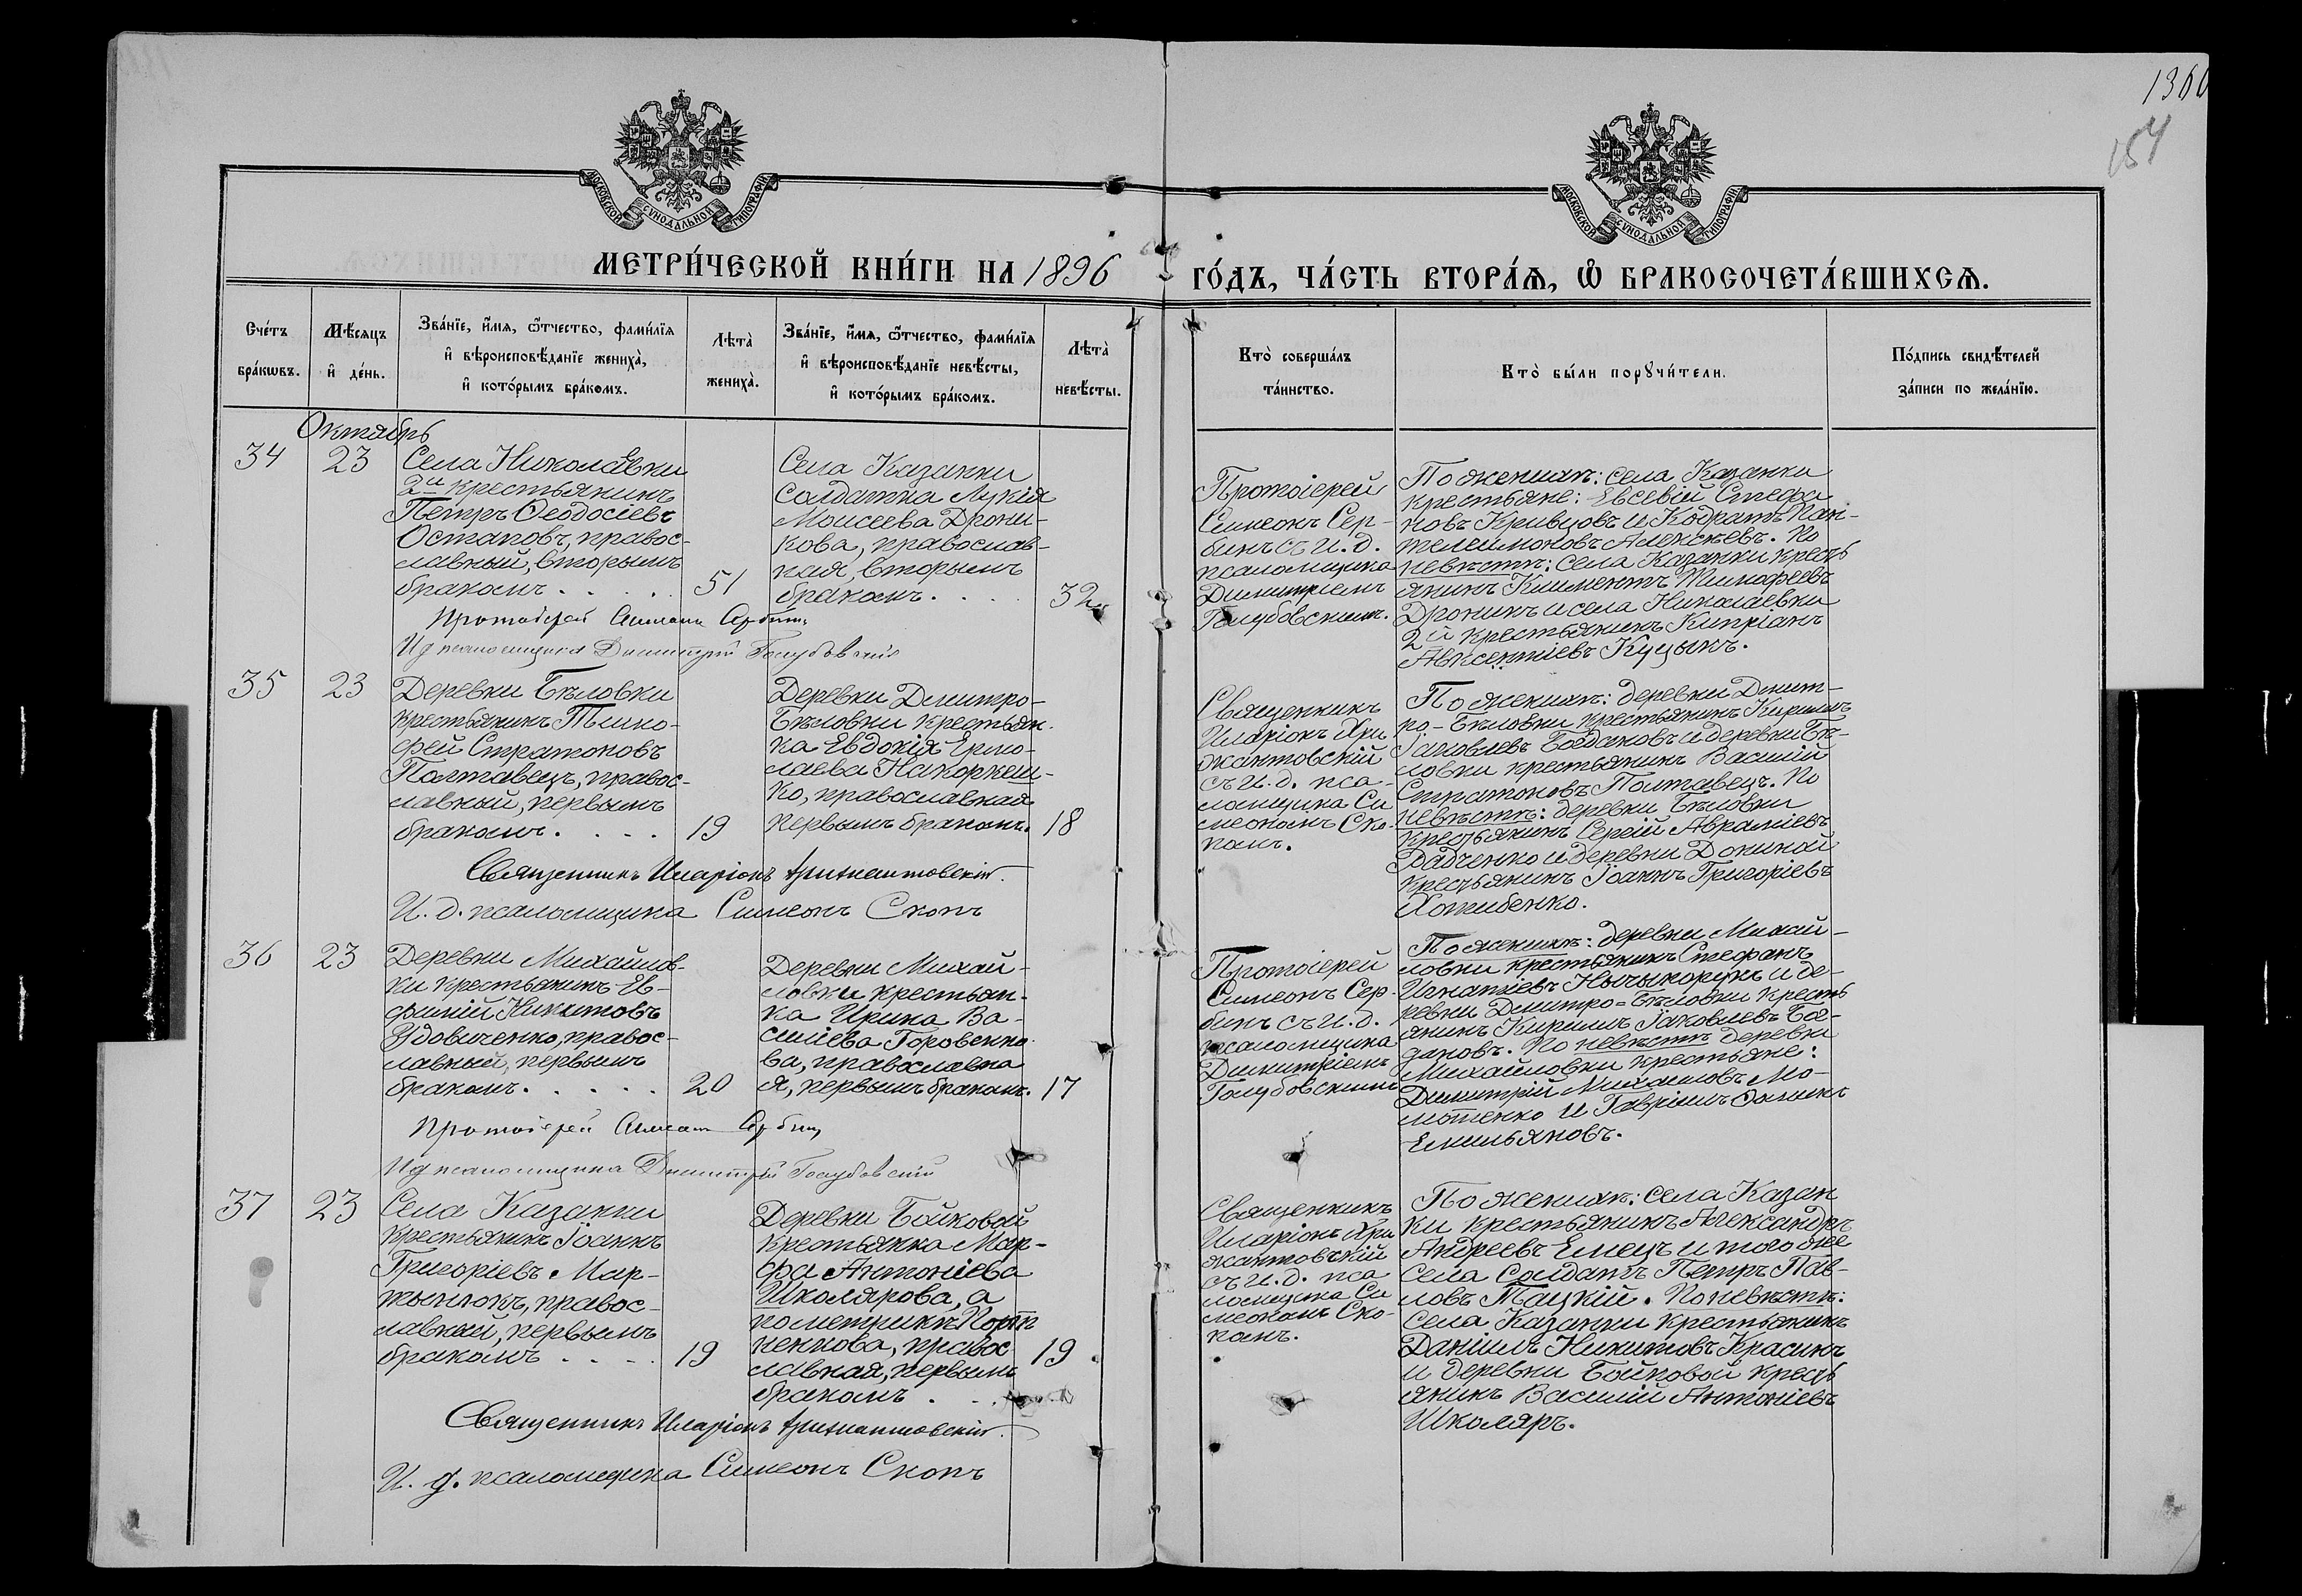 1360
154
МОСКОВСКОЙ СѴНОДАЛЬНОЙ ТИПОГРАФІИ
МОСКОВСКОЙ СѴНОДАЛЬНОЙ ТИПОГРАФІИ
МЕТРИ́ЧЕСКОЙ КНИ́ГИ НА 1896
ГО́ДЪ, ЧА́СТЬ ВТОРА́Ѧ, Ѡ҆ БРАКОСОЧЕТА́ВШИХСѦ.
Сче́тъ
бра́кѡвъ.
Мѣ́сяцъ
и҆ де́нь.
Зва́нїе, и҆́мя, ѻ҆́тчество, фами́лїя
и҆ вѣроисповѣ́данїе жениха̀,
и҆ кото́рымъ бра́комъ.
Лѣта̀
жениха̀.
Зва́нїе, и҆́мя, ѻ҆́тчество, фами́лїя
и҆ вѣроисповѣ́данїе невѣ́сты,
и҆ кото́рымъ бра́комъ.
Лѣта̀
невѣ́сты.
Кто̀ соверша́лъ
та́инство.
Кто̀ бы́ли порꙋчи́тели.
По́дпись свидѣ́телей
за́писи по жела́нїю.
Октябрь
34
23
Села Николаевки
2й крестьянинъ
Петръ Ѳеодосіевъ
Остаповъ, правос-
лавный, вторымъ
бракомъ . . . . .
51
Села Казанки
солдатка Лукія
Моисеева Дрони-
кова, православ-
ная, вторымъ
бракомъ . . . .
32
Протоіерей
Симеонъ Сер-
бинъ съ И. д.
псаломщика
Димитріемъ
Голубовскимъ.
По женихѣ: села Казанки
крестьяне: Евсевій Стефа-
новъ Кривцовъ и Кодратъ Пан-
телеимоновъ Алексѣевъ. По
невѣстѣ: села Казанки кресть
янинъ Климентъ Тимофеевъ
Дроникъ и села Николаевки
2й крестьянинъ Кипріанъ
Авксентіевъ Куцынъ.
Протоіерей Симеонъ Сербинъ
И д псаломщика Димитрій Голубовскій
35
23
Деревни Бѣловки
крестьянинъ Тимо-
фей Стратоновъ
Полтавецъ, правос-
лавный, первымъ
бракомъ . . . .
19
Деревни Дмитро-
Бѣловки крестьян-
ка Евдокія Ермо-
лаева Накорнеш-
ко, православная
первымъ бракомъ.
18
Священникъ
Иларіонъ Хри
жантовскій
съ И. д. пса-
ломщика Си
меономъ Ско-
помъ.
По женихѣ: деревни Дмит-
ро-Бѣловки крестьянинъ Кириллъ
Іаковлевъ Богдановъ и деревни Бѣ-
ловки крестьянинъ Василій
Стратоновъ Полтавецъ. По
невѣстѣ: деревни Бѣловки
крестьянинъ Сергій Авраміевъ
Радченко и деревни Докиной
крестьянинъ Іоаннъ Григоріевъ
Хотибенко.
Священникъ Иларіонъ Хрижантовскій.
И. д. псаломщика Симеонъ Скопъ
36
23
Деревни Михайлов-
ки крестьянинъ Ев-
фимій Никитовъ
Удовиченко, правос-
лавный, первымъ
бракомъ . . . . .
20
Деревни Михай-
ловки крестьян-
ка Ирина Ва-
силіева Горовенко-
ва, православна
я, первымъ бракомъ.
17
Протоіерей
Симеонъ Сер-
бинъ съ И. д.
псаломщика
Димитріемъ
Голубовскимъ
По женихѣ: деревни Михай-
ловки крестьянинъ Стефанъ
Игнатіевъ Нычыпорукъ и де-
ревни Дмитро-Бѣловки кресть
янинъ Кириллъ Іаковлевъ Бог-
дановъ. По невѣстѣ деревни
Михайловки крестьяне:
Димитрій Михаиловъ Мо-
лотенко и Гавріилъ Ѳоминъ
Емильяновъ.
Протоіерей Симеонъ Сербинъ
И д псаломщика Димитрій Голубовскій
37
23
Села Казанки
крестьянинъ Іоаннъ
Григоріевъ Мар-
тынюкъ, правос-
лавный, первымъ
бракомъ . . . .
19
Деревни Бойковой
крестьянка Мар-
фа Антоніева
Школярова, а
по метрикѣ Порт
ненкова, правос
лавная, первымъ
бракомъ . . .
19
Священникъ
Иларіонъ Хри
жантовскій
съ И. д. пса
ломщика Си
меономъ Ско-
помъ.
По женихѣ: села Казан
ки крестьянинъ Александръ
Андреевъ Емецъ и того же
села солдатъ Петръ Пав-
ловъ Тацкій. По невѣстѣ:
села Казанки крестьянинъ
Даніилъ Никитовъ Красинъ
и деревни Бойковой кресть
янинъ Василій Антоніевъ
Школяръ.
Священникъ Иларіонъ Хрижантовскій.
И. д. псаломщика Симеонъ Скопъ